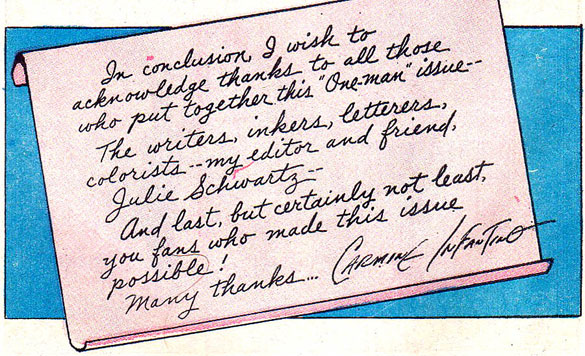 In conclusion, I wish to
acknowledge thanks to all those
who put together this "One-man" issue--
The writers, inkers, letterers,
colorists--my editor and friend,
Julie Schwartz--
And last, but certainly not least,
you fans who made this issue
possible!
Many thanks... CARMINE INFANTINO